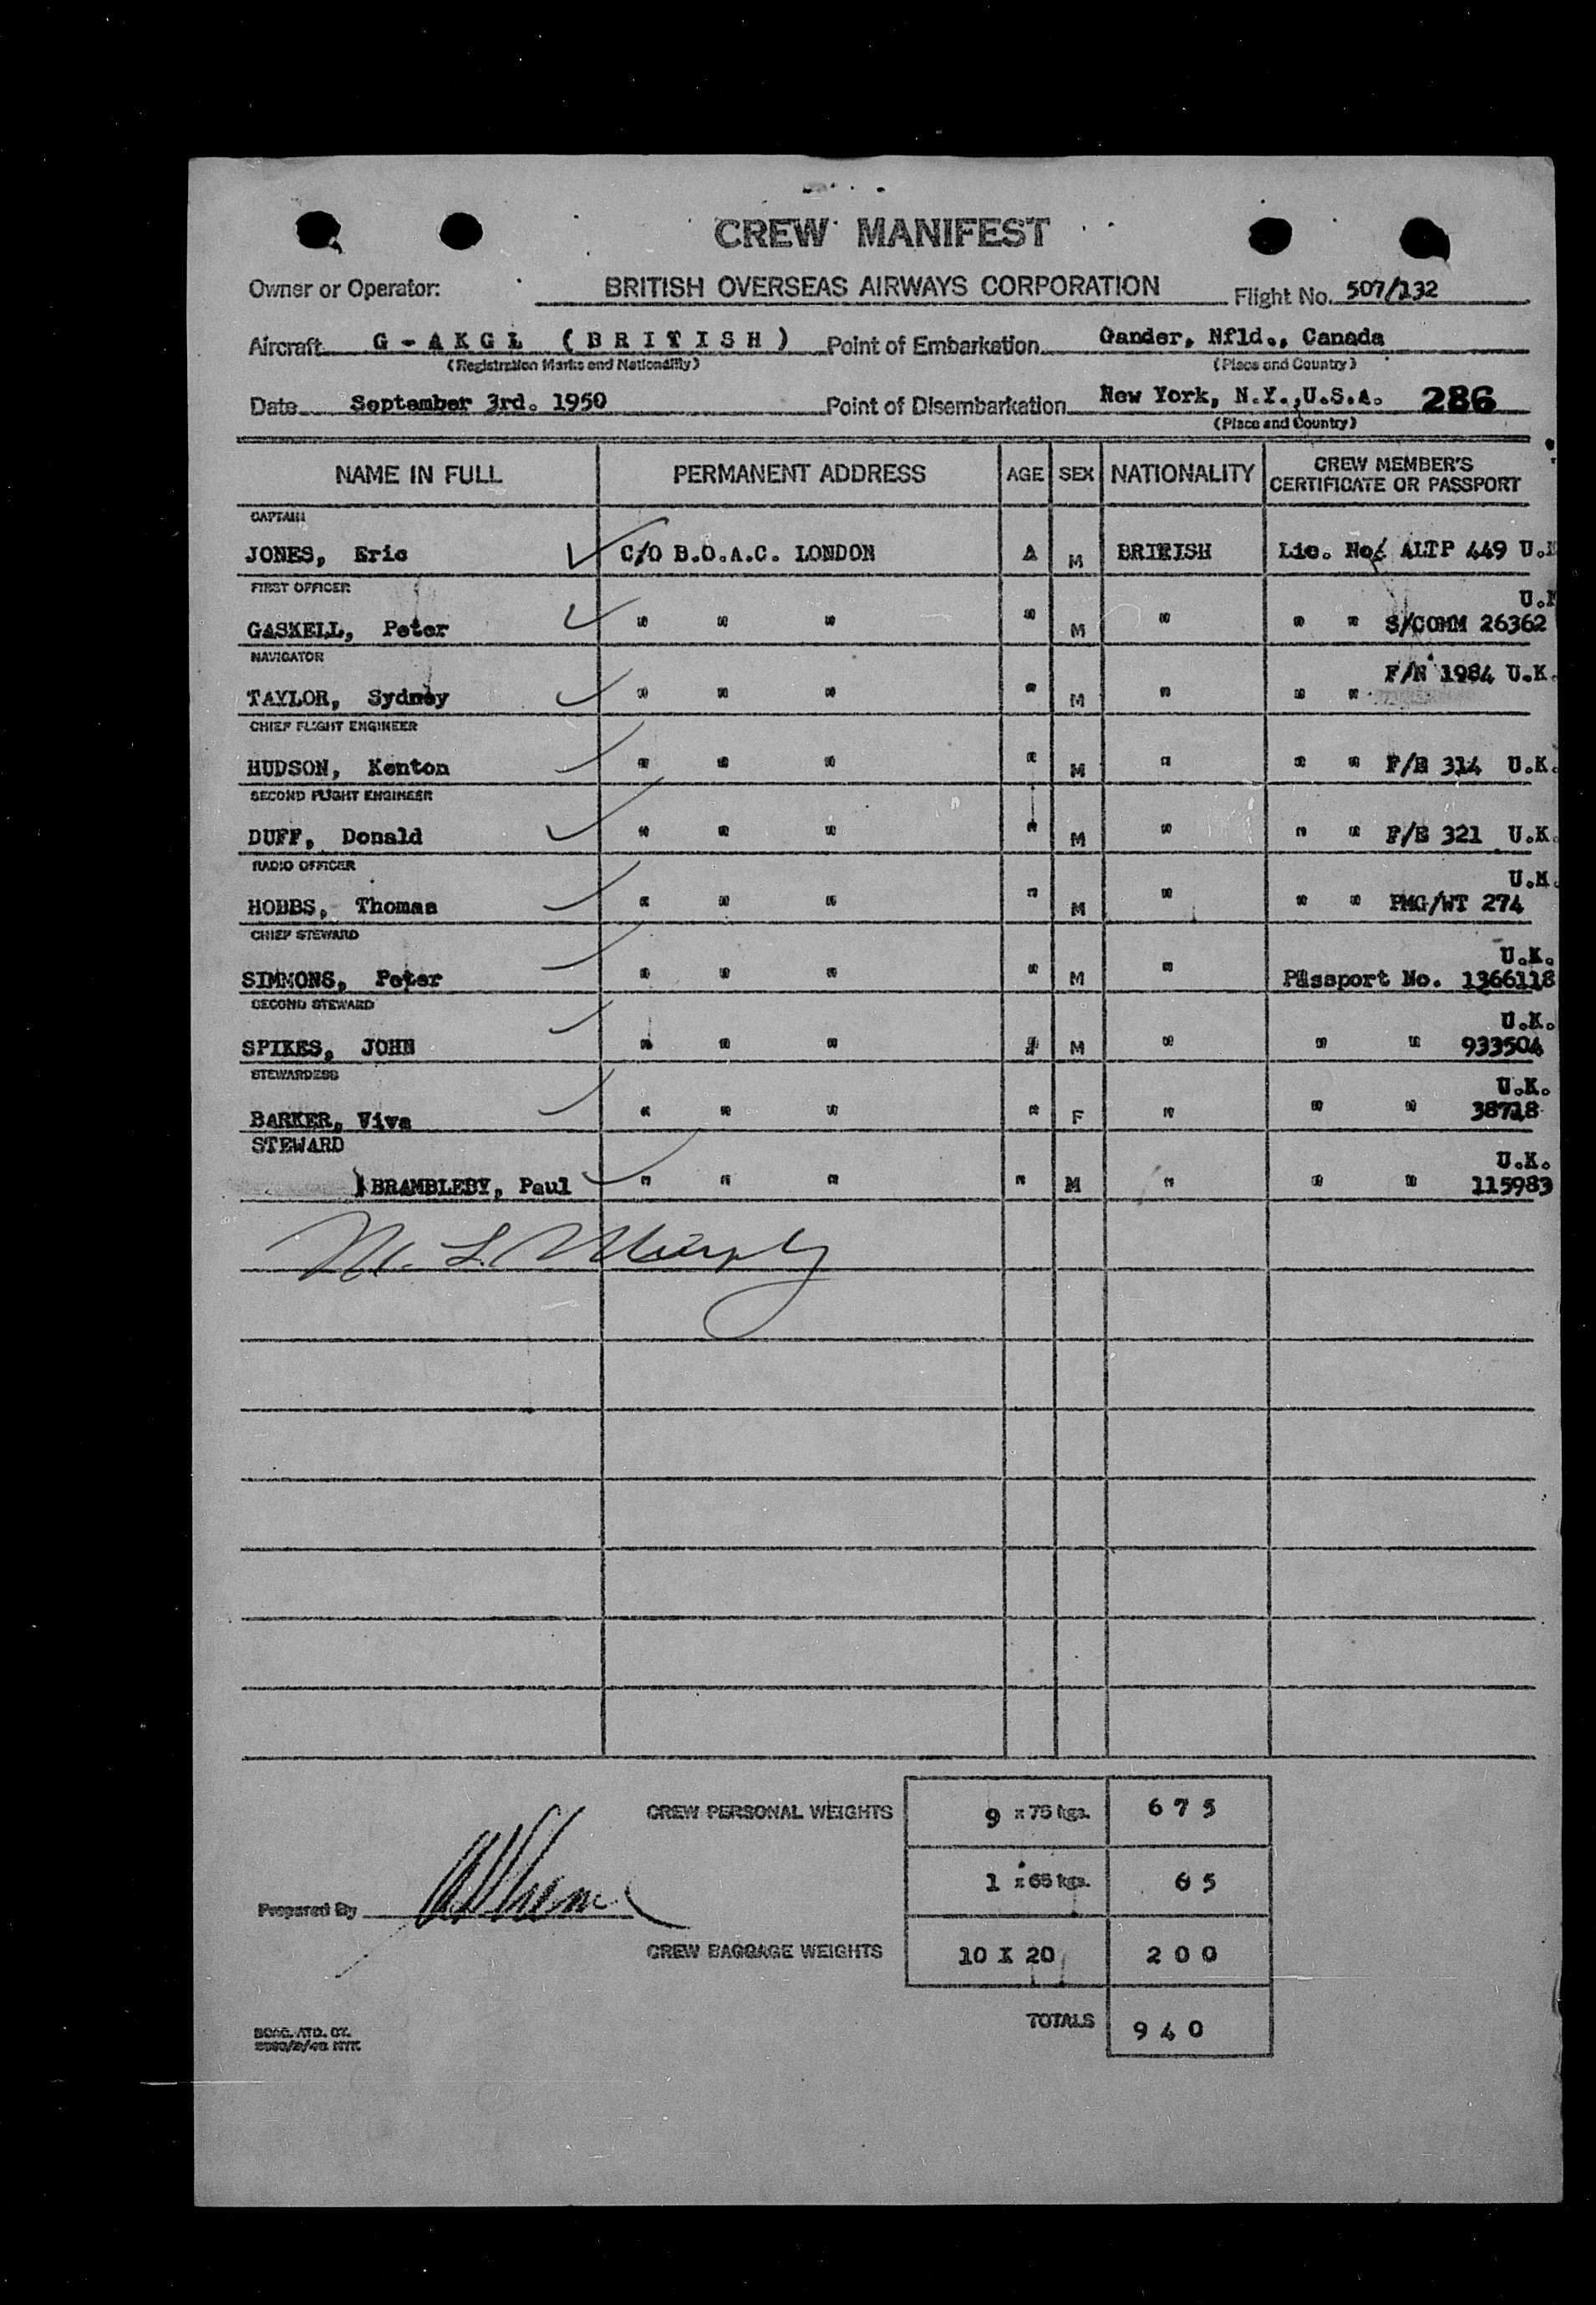 CREW MANIFEST
Owner or Operator: BRITISH OVERSEAS AIRWAYS CORPORATION Flight No. 507/132
Aircraft G - A K G L ( B R I T I S H ) Point of Embarkation Gander, Nfld., Canada
(Registration Marks and Nationality) (Place and Country)
Date September 3rd. 1950 Point of Disembarkation New York, N.Y.,U.S.A. 286
(Place and Country)
NAME IN FULL PERMANENT ADDRESS AGE SEX NATIONALITY CREW MEMBER'S CERTIFICATE OR PASSPORT
CAPTAIN
JONES, Eric C/O B.O.A.C. LONDON A M BRITISH Lic. No. ALTP 449
FIRST OFFICER
GASKELL, Peter " " " " M " " " S/COMM 26362
NAVIGATOR
F/N 1984 U.K.
TAYLOR, Sydney " " " " M " " "
CHIEF FLIGHT ENGINEER
HUDSON, Kenton " " " " M " " " F/E 314 U.K.
SECOND FLIGHT ENGINEER
DUFF, Donald " " " " M " " " F/E 321 U.K.
RADIO OFFICER
U.K.
HOBBS, Thomas " " " " M " " " PMG/WT 274
CHIEF STEWARD
U.K.
SIMMONS, Peter " " " " M " Passport No. 1366118
SECOND STEWARD
U.K.
SPIKES, JOHN " " " " M " " " 933504
STEWARDESS
U.K.
BARKER, Viva " " " " F " " " 38718
STEWARD
U.K.
BRAMBLEBY, Paul " " " " M " " " 115983
M. L. Murphy
CREW PERSONAL WEIGHTS 9 x 75 kgs. 6 7 5
1 x 65 kgs. 6 5
Prepared By
CREW BAGGAGE WEIGHTS 10 X 20 2 0 0
TOTALS 9 4 0